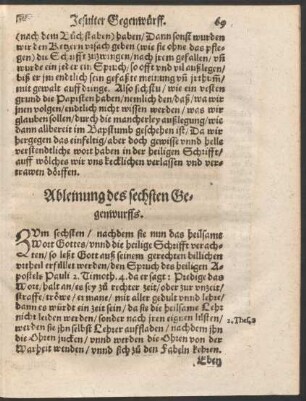 Jesuiter Gegenwürff. 69
(nach dem Buchstaben) haben/ Dann sonst wurden
wir den Ketzern vrsach geben (wie sie ohne das pfle-
gen) die Schrifft zuzwingen/ nach jrem gefallen/ vñ
wurde ein jeder ein Spruch/ so offt vnd vil außlegen/
biß er jm endtlich sein gefaßte meinung vñ jrthum̃/
mit gewalt auff dunge. Also sichstu/ wie ein vesten
grund die Papisten haben/ nemlich den/ daß/ wa wir
jnen volgen/ endtlich nicht wissen werden/ was wir
glauben sollen/ durch die mancherley außlegung/ wie
dann allbereit im Bapstumb geschehen ist/ Da wir
hergegen das einfeltig/ aber doch gewisse vnnd helle
verstendtliche wort haben in der heiligen Schrifft/
auff wölches wir vns kecklichen verlassen vnd ver-
trawen dörffen.
Ableinung des sechsten Ge-
genwurffs.
ZVm sechsten/ nachdem sie nun das heilsame
Wort Gottes/ vnnd die heilige Schrifft verach-
ten/ so lest Gott auß seinem gerechten billichen
vrtheil erfüllet werden/ den Spruch des heiligen A-
postels Pauli 2. Timoth. 4. da er sagt: Predige das
Wort/ halt an/ es sey zu rechter zeit/ oder zur vnzeit/
straffe/ tröwe/ ermane/ mit aller gedult vnnd lehre/
dann es würdt ein zeit sein/ da sie die heilsame Lehr
nicht leiden werden/ sonder nach jren eignen lüsten/
werden sie jhn selbst Lehrer auffladen/ nachdem jhn
die Ohren jucken/ vnnd werden die Ohren von der
Warheit wenden/ vnnd sich zu den Fabeln kehren.
2. Thess. 2
Eben